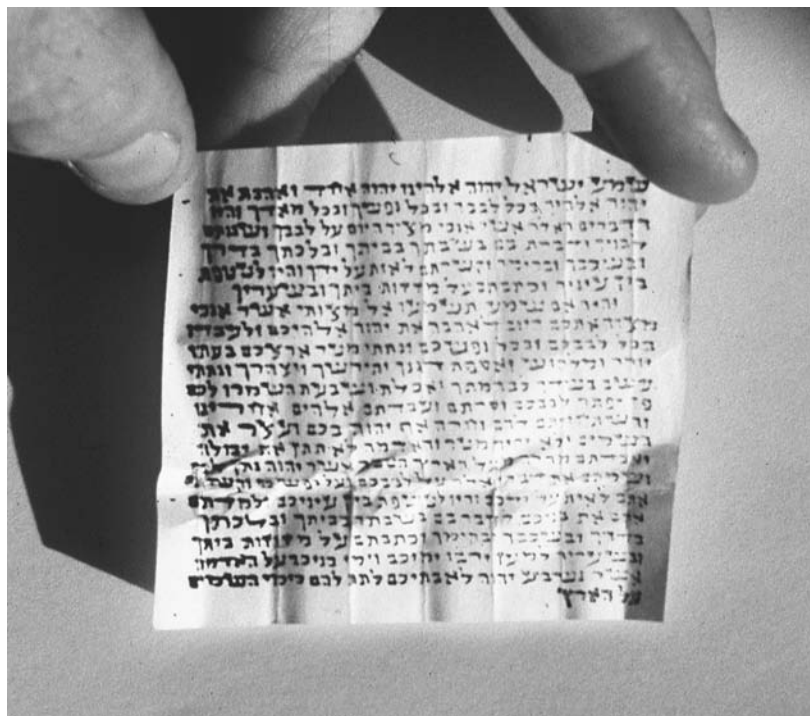 שמע ישראל יהוה אלהינו יהוה אחד ואהבת את
יהוה אלהיך בכל לבבך ובכל נפשך ובכל מאדך והיו
הדברים האלה אשר אנכי מצוך היום על לבבך ושננתם
לבניך ודברת בם בשבתך בביתך ובלכתך בדרך
ובשכבך ובקומך וקשרתם לאות על ידך והיו לטטפת
בין עיניך וכתבתם על מזזות ביתך ובשעריך
והיה אם שמע תשמעו אל מצותי אשר אנכי
מצוה אתכם היום לאהבה את יהוה אלהיכם ולעבדו
בכל לבבכם ובכל נפשכם ונתתי מטר ארצכם בעתו
יורה ומלקוש ואספת דגנך ותירשך ויצהרך ונתתי
עשב בשדך לבהמתך ואכלת ושבעת השמרו לכם
פן יפתה לבבכם וסרתם ועבדתם אלהים אחרים
והשתחויתם להם וחרה אף יהוה בכם ועצר את
השמים ולא יהיה מטר והאדמה לא תתן את יבולה
ואבדתם מהרה מעל הארץ הטבה אשר יהוה נתן
ושמתם את דברי אלה על לבבכם ועל נפשכם וקשרתם
אתם לאות על ידכם והיו לטוטפת בין עיניכם ולמדתם
אתם את בניכם לדבר בם בשבתך בביתך ובלכתך
בדרך ובשכבך ובקומך וכתבתם על מזוזות ביתך
ובשעריך למען ירבו ימיכם וימי בניכם על האדמה
אשר נשבע יהוה לאבתיכם לתת להם כימי השמים
על הארץ